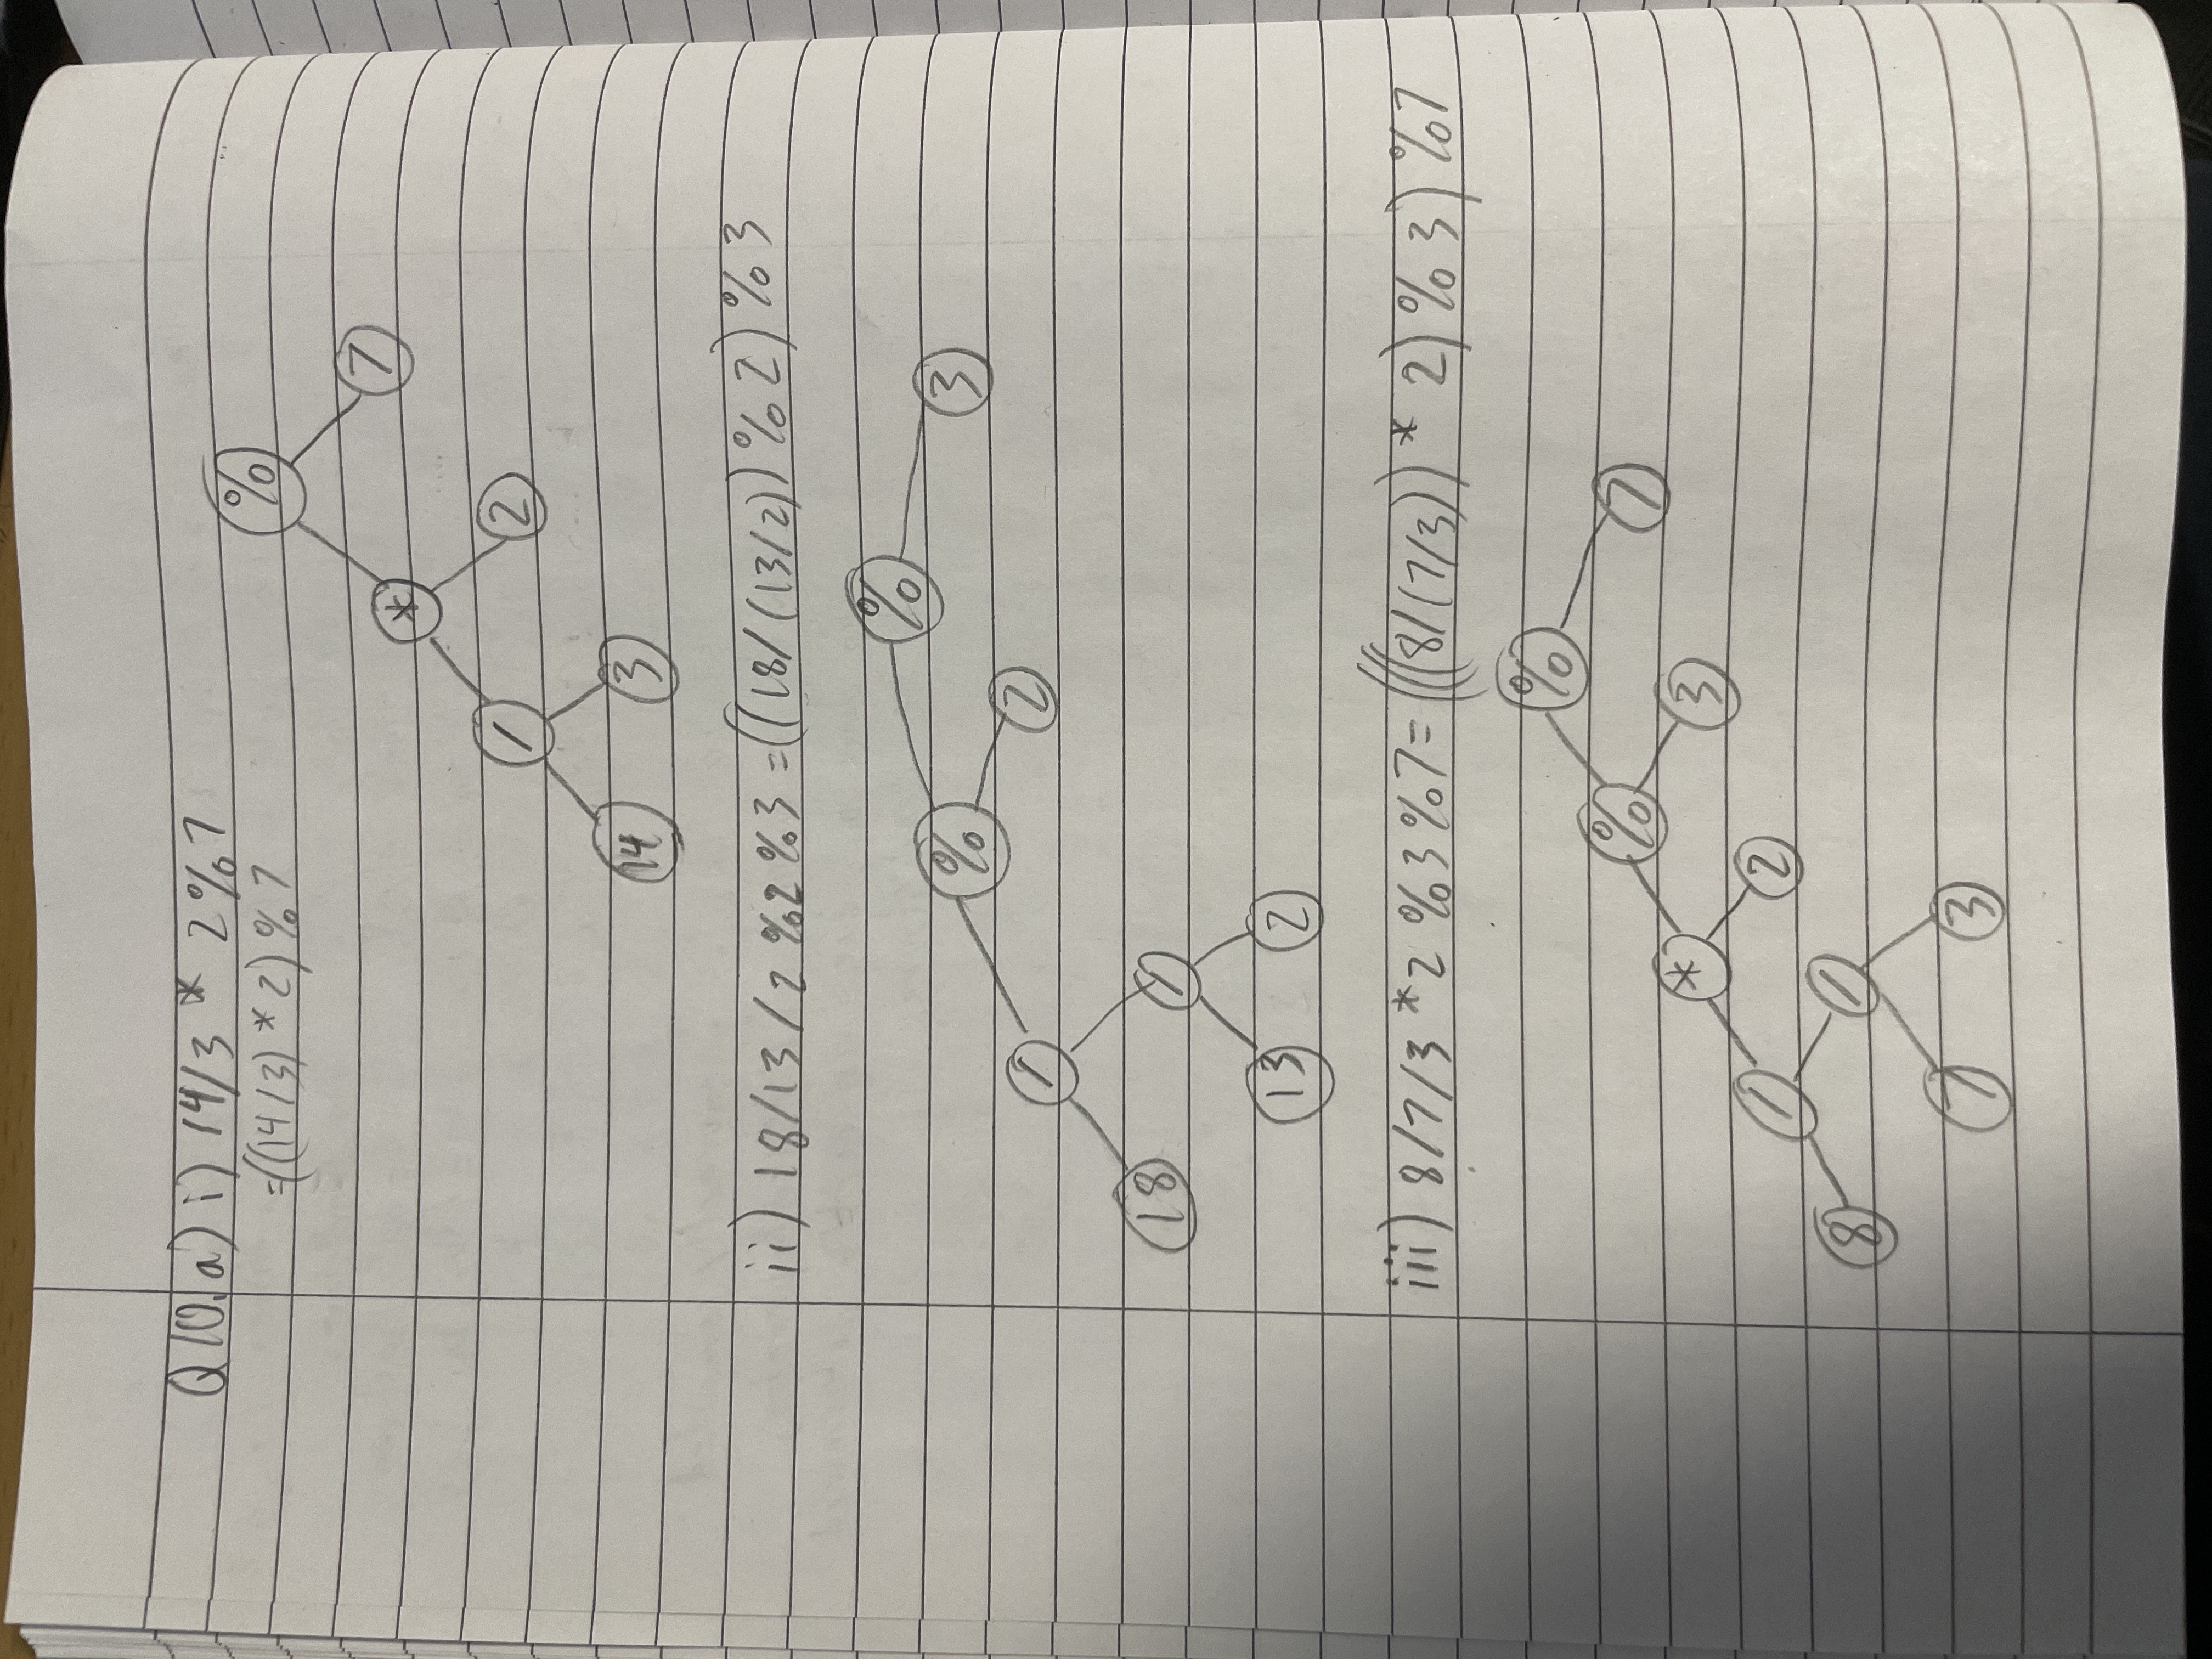 Q10. a) i) 14/3 * 2%7
=((14/3) * 2) % 7
%
* 7
/ 2
14 3
ii) 18/13/2 %2 %3 = ((18/(13/2)) % 2) % 3
%
% 3
/ 2
18 /
13 2
iii) 8/7/3 * 2 %3 %7 = (((8/(7/3)) * 2) % 3) %7
%
% 7
* 3
/ 2
8 /
7 3